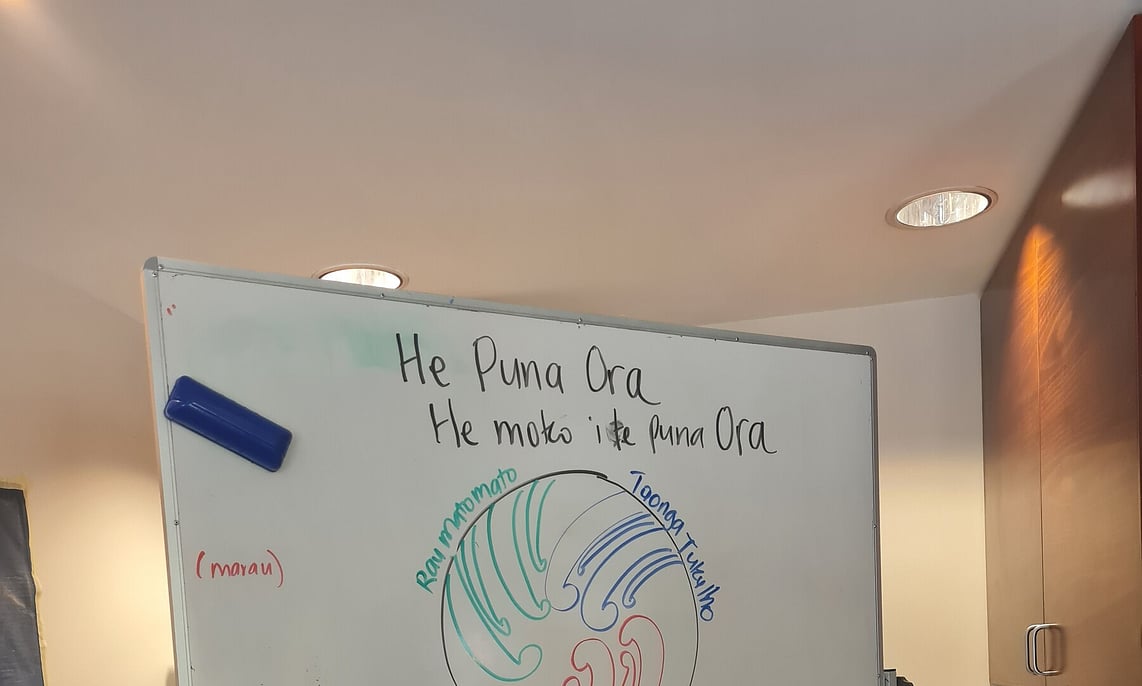 He Puna Ora
He moko i te puna Ora
Rau matomato
Taonga Tuku Iho
(marau)